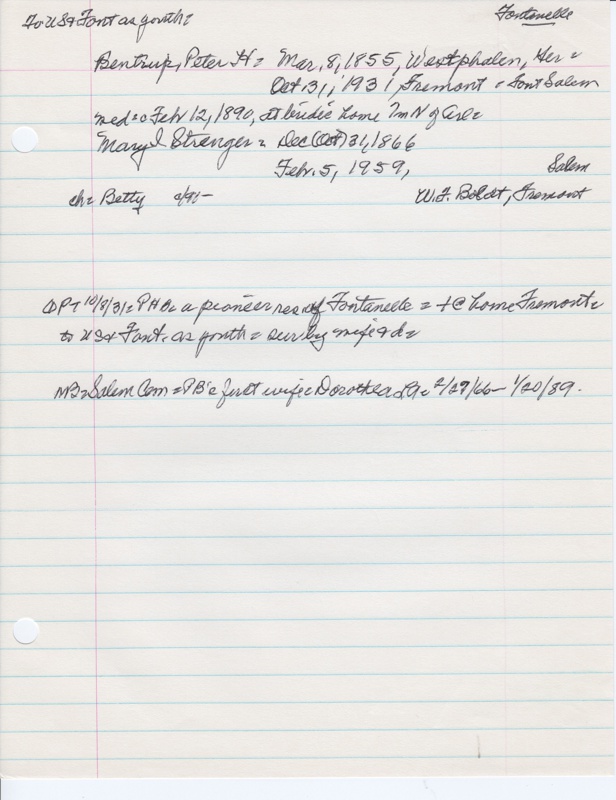 To US & Font as youth=
Fontenelle
Bentrup, Peter H = Mar. 8, 1855, Westphalen, Ger =
Oct 31, 1931, Fremont = Font Salem
med = c Feb 12, 1890, at bride's home 7m N of Arl =
Mary I Stranger = Dec (Oct) 31, 1866
Feb. 5, 1959,
Salem
ch = Betty c/91-
W. F. Boldt, Fremont
10/8/31 = PHB = a pioneer res of Fontanelle = + @ home Fremont =
to US & Font. as youth = sur by wife & d =
NB = Salem Cem = PB's first wife = Dorothea = 2/27/66 - 1/20/89.